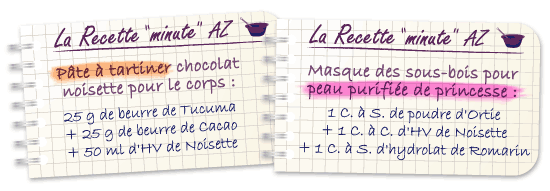 La Recette "minute" AZ
Pâte à tartiner chocolat
noisette pour le corps :
25 g de beurre de Tucuma
+ 25 g de beurre de Cacao
+ 50 ml d'HV de Noisette
La Recette "minute" AZ
Masque des sous-bois pour
peau purifiée de princesse :
1 C. à S. de poudre d'Ortie
+ 1 C. à C. d'HV de Noisette
+ 1 C. à S. d'hydrolat de Romarin